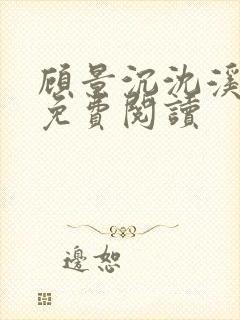 顾景沉沈溪
免費閱讀
邊恕